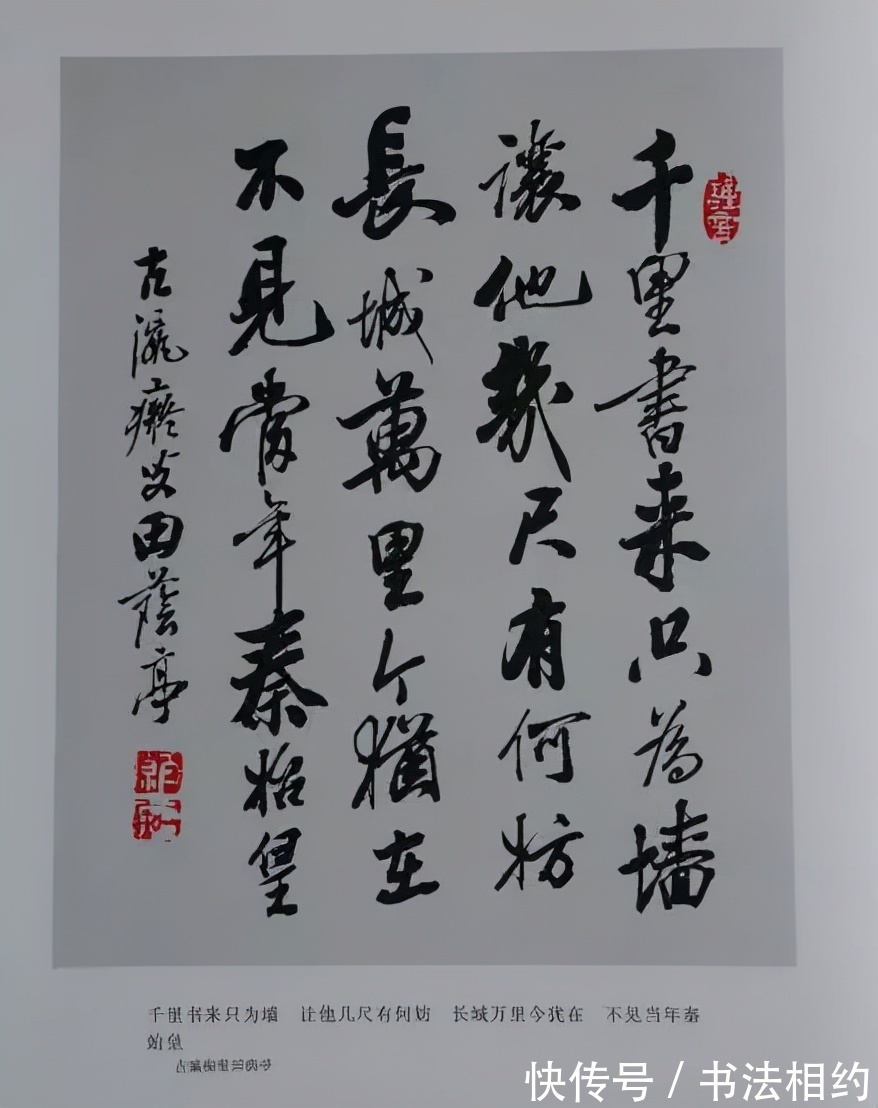 千里書来只为墻
讓他幾尺有何妨
長城萬里今猶在
不見當年秦始皇
田蔭亭
千里书来只为墙 让他几尺有何妨 长城万里今犹在 不见当年秦
始皇
快传号 / 书法相约